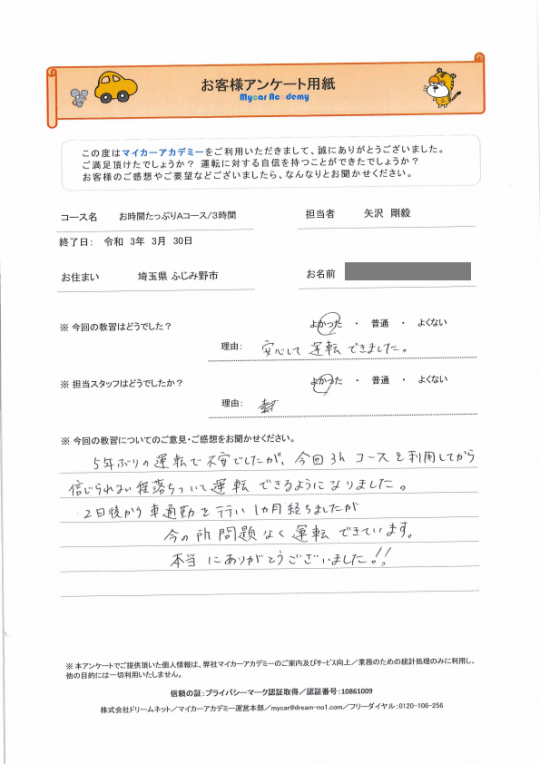 お客様アンケート用紙
Mycar Academy
この度はマイカーアカデミーをご利用いただきまして、誠にありがとうございました。
ご満足頂けたでしょうか？ 運転に対する自信を持つことができたでしょうか？
お客様のご感想やご要望などございましたら、なんなりとお聞かせください。
コース名 お時間たっぷりAコース/3時間 担当者 矢沢 剛毅
終了日： 令和 3年 3月 30日
お住まい 埼玉県 ふじみ野市 お名前
※ 今回の教習はどうでした？ よかった ・ 普通 ・ よくない
理由： 安心して 運転 できました。
※ 担当スタッフはどうでしたか？ よかった ・ 普通 ・ よくない
理由：
※ 今回の教習についてのご意見・ご感想をお聞かせください。
5年ぶりの運転で不安でしたが、今回3hコースを利用してから
信じられない程落ちついて運転できるようになりました。
2日後から車通勤を行い1カ月経ちましたが
今の所問題なく運転できています。
本当にありがとうございました!!
※ 本アンケートでご提供頂いた個人情報は、弊社マイカーアカデミーのご案内及びサービス向上／業務のための統計処理のみに利用し、
他の目的には一切利用いたしません。
信頼の証：プライバシーマーク認証取得／認証番号：10861009
株式会社ドリームネット／マイカーアカデミー運営本部／mycar@dream-no1.com／フリーダイヤル：0120-106-256